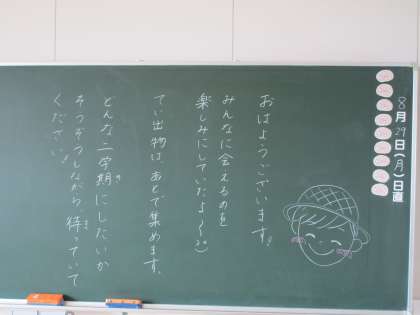 8月29日(月)日直
おはようございます!
みんなに会えるのを
楽しみにしていたよ〜
てい出物は、あとで集めます。
どんな二学期にしたいか
そわそわしながら待っていて
ください!